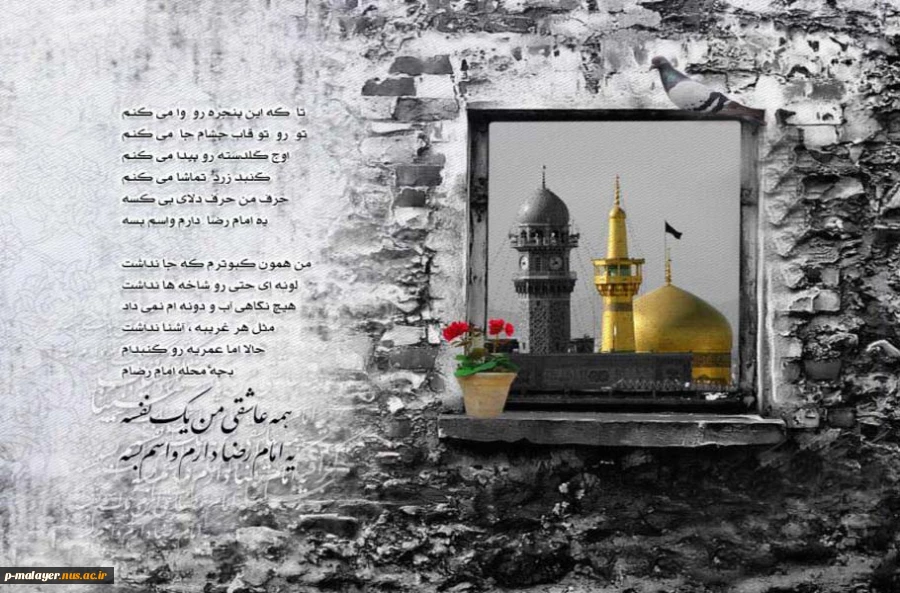 تا که این پنجره رو وا می کنم
تو رو تو قاب چشام جا می کنم
اوج گلدسته رو پیدا می کنم
گنبد زرد تماشا می کنم
حرف من حرف دلای بی کسه
یه امام رضا دارم واسم بسه
من همون کبوترم که جا نداشت
لونه ای حتی رو شاخه ها نداشت
هیچ نگاهی آب و دونه ام نمی داد
مثل هر غریبه ، آشنا نداشت
حالا اما عمریه رو گنبدام
بچه محله امام رضام
همه عاشقی من یک نفسه
یه امام رضا دارم واسم بسه
p-malayer.nus.ac.ir